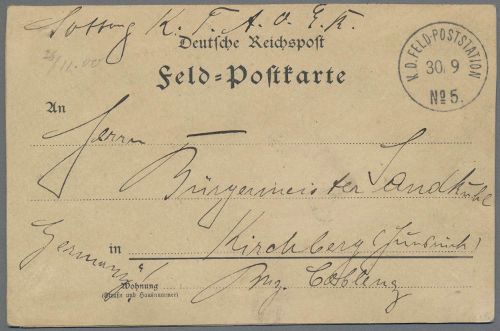 K. T. A. O. E. K.
Deutsche Reichspost
28/11.00
Feld=Postkarte
K. D. FELD-POSTSTATION
30. 9
No 5.
An
Herrn
Bürgermeister
in Kirchberg (Hunsrück)
Germany
Bez. Coblenz
Wohnung
(Straße und Hausnummer)